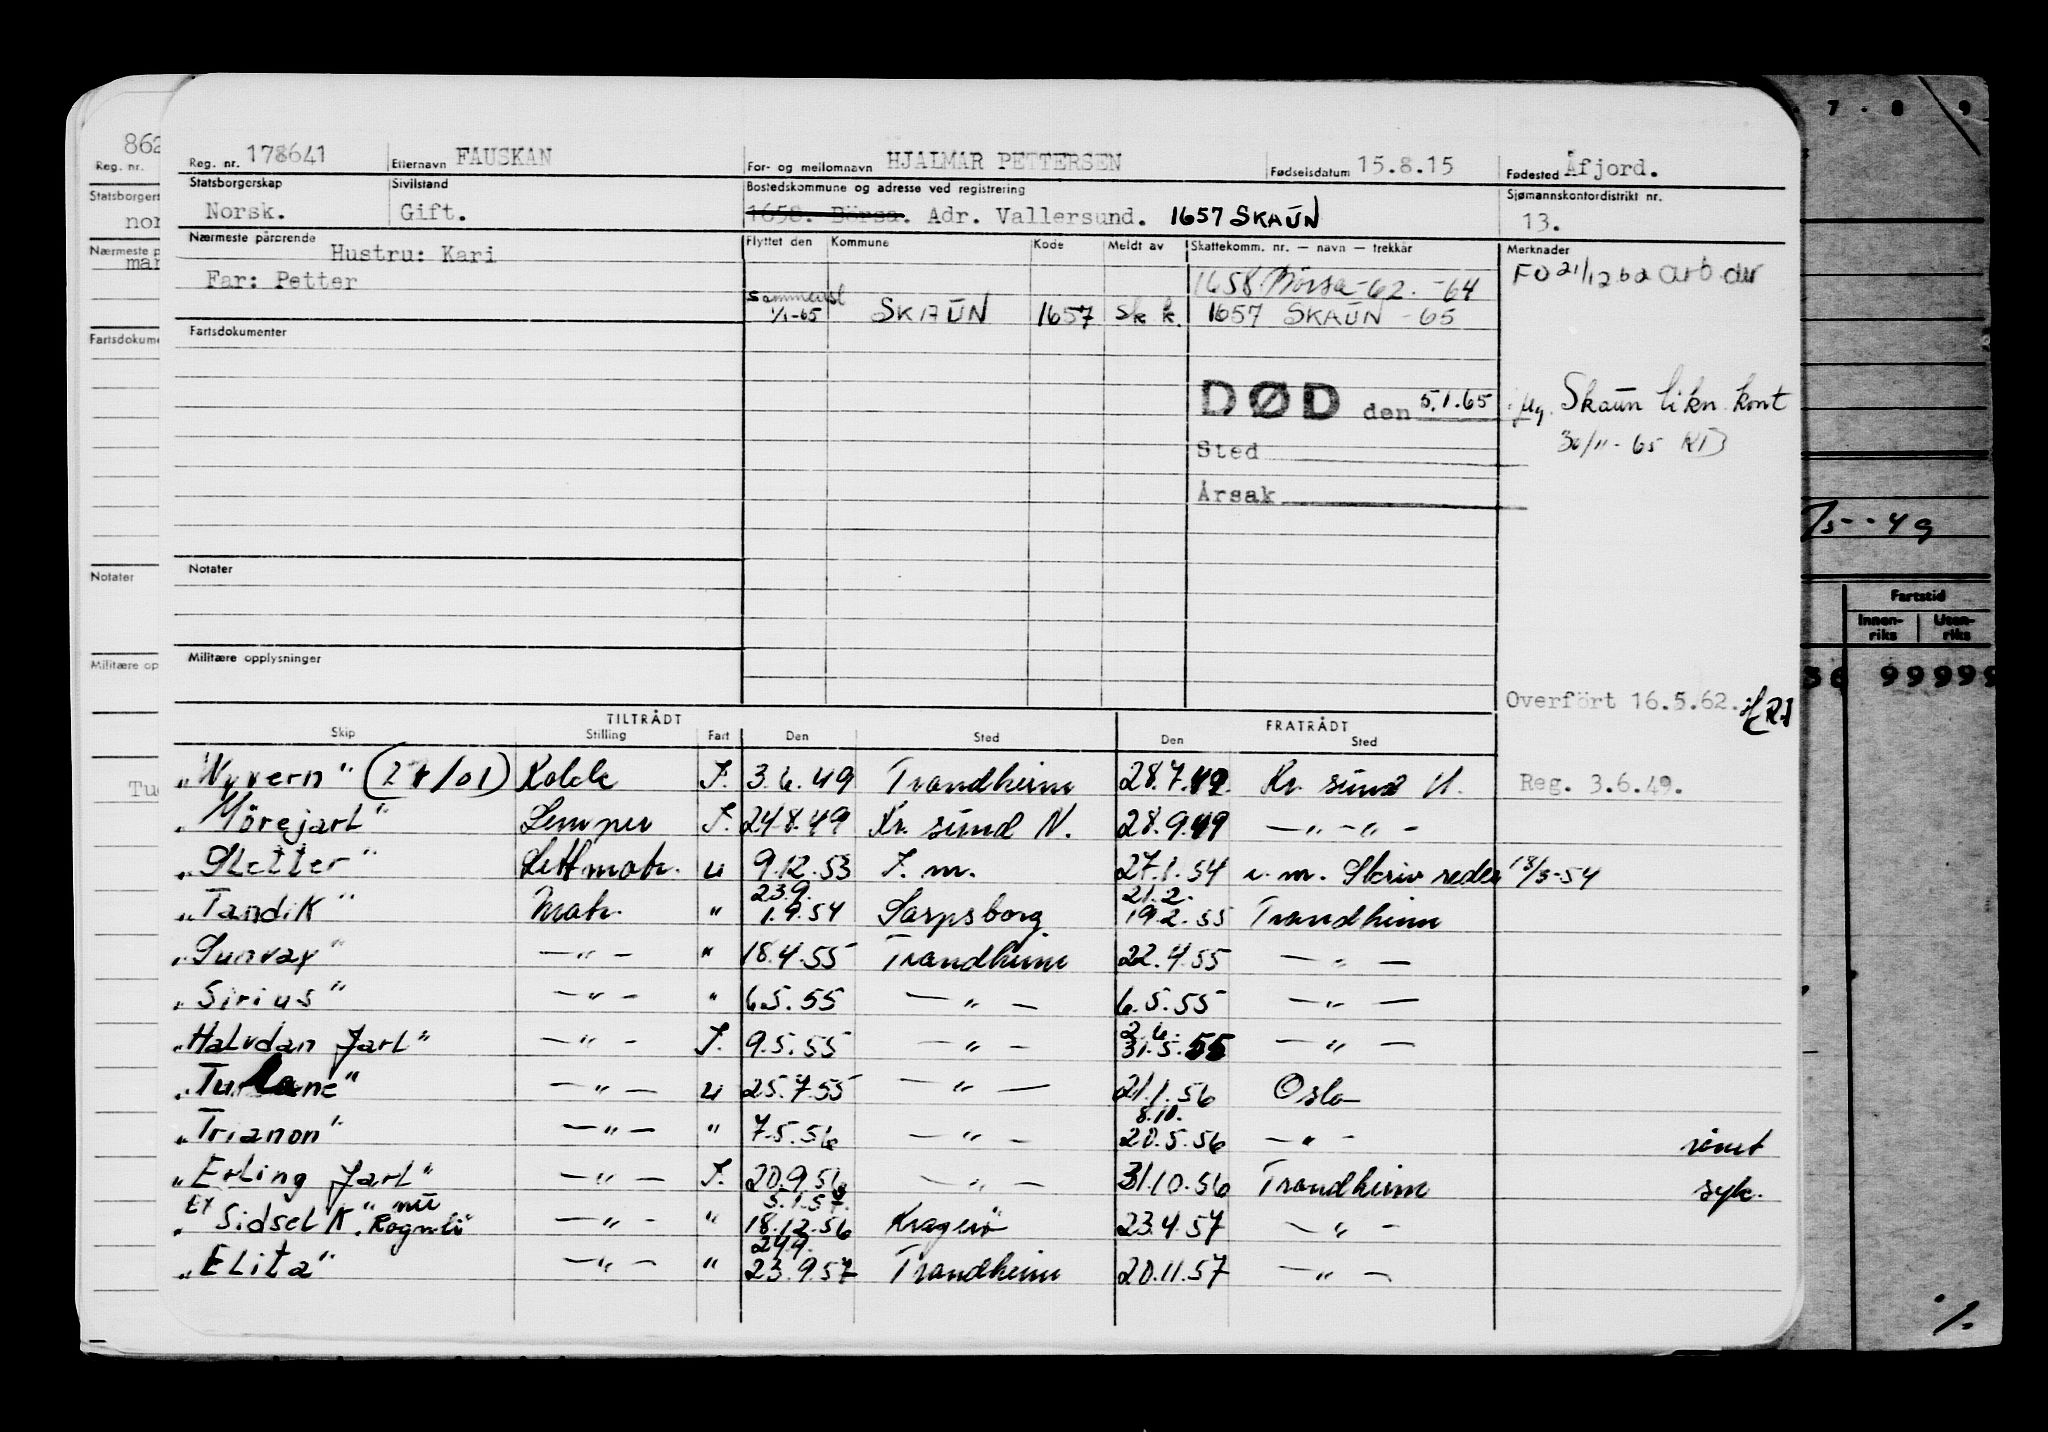 7 - 8 9
862
Reg. nr.
Reg. nr. 178641 Etternavn FAUSKAN For- og mellomnavn HJALMAR PETTERSEN Fødselsdatum 15.8.15 Fødested Åfjord.
Statsborgerskap Sivilstand Bostedskommune og adresse ved registrering Sjømannskontordistrikt nr.
Norsk. Gift. 1658. Börsa. Adr. Vallersund. 1657 SKAUN 13.
Nærmeste pårørende Hustru: Kari Flyttet den Kommune Kode Meldt av Skattekomm. nr. — navn — trekkår Merknader
Far: Petter 1658 Börsa -62. -64 FO 21/12 62 arb der
sammensl
1/1-65 SKAUN 1657 Sk k. 1657 SKAUN -65
Fartsdokumenter
DØD den 5.1.65 Skaun likn. kont
30/11-65
Sted
Årsak
/5--49
Notater
Fartstid
Innen-riks Uten-riks
Militære opplysninger
36 99999
Overfört 16.5.62.
TILTRÅDT FRATRÅDT
Skip Stilling Fart Den Sted Den Sted
"Wyvern" Kokk I. 3.6.49 Trondheim 28.7.49. Kr. sund N. Reg. 3.6.49.
"Mörejarl" Lemper I. 24.8.49 Kr. sund N. 28.9.49 —"—"—
"Sletter" Lettmatr. u 9.12.53 I. m. 27.1.54 i. m. Skriv reder 18/3-54
23.9. 21.2.
"Tandik" Matr. " 1.9.54 Sarpsborg 19.2.55 Trondheim
"Sunvay" —"— " 18.4.55 Trondheim 22.4.55 —"—
"Sirius" —"— " 6.5.55 —"— 6.5.55 —"—
2.6.
"Halvdan Jarl" —"— I. 9.5.55 —"— 31.5.55 —"—
"Tulane" —"— u 25.7.55 —"— 21.1.56 Oslo
8.10.
"Trianon" —"— " 7.5.56 —"— 20.5.56 —"— römt
"Erling Jarl" —"— I. 20.9.56 —"— 31.10.56 Trondheim syk.
Ex nu 5.1.57.
"Sidsel K". Rognli —"— " 18.12.56 Kragerö 23.4.57 —"—
24.9.
"Elita" —"— " 23.9.57 Trondheim 20.11.57 —"—